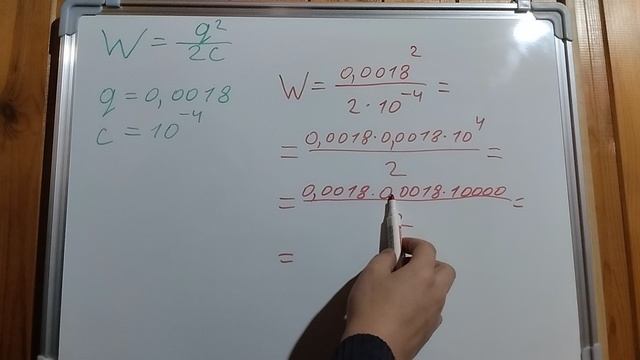 W = q²/2c
q = 0,0018
c = 10⁻⁴
W = 0,0018²/2·10⁻⁴ =
= 0,0018·0,0018·10⁴/2 =
= 0,0018·0,0018·10000/ =
=